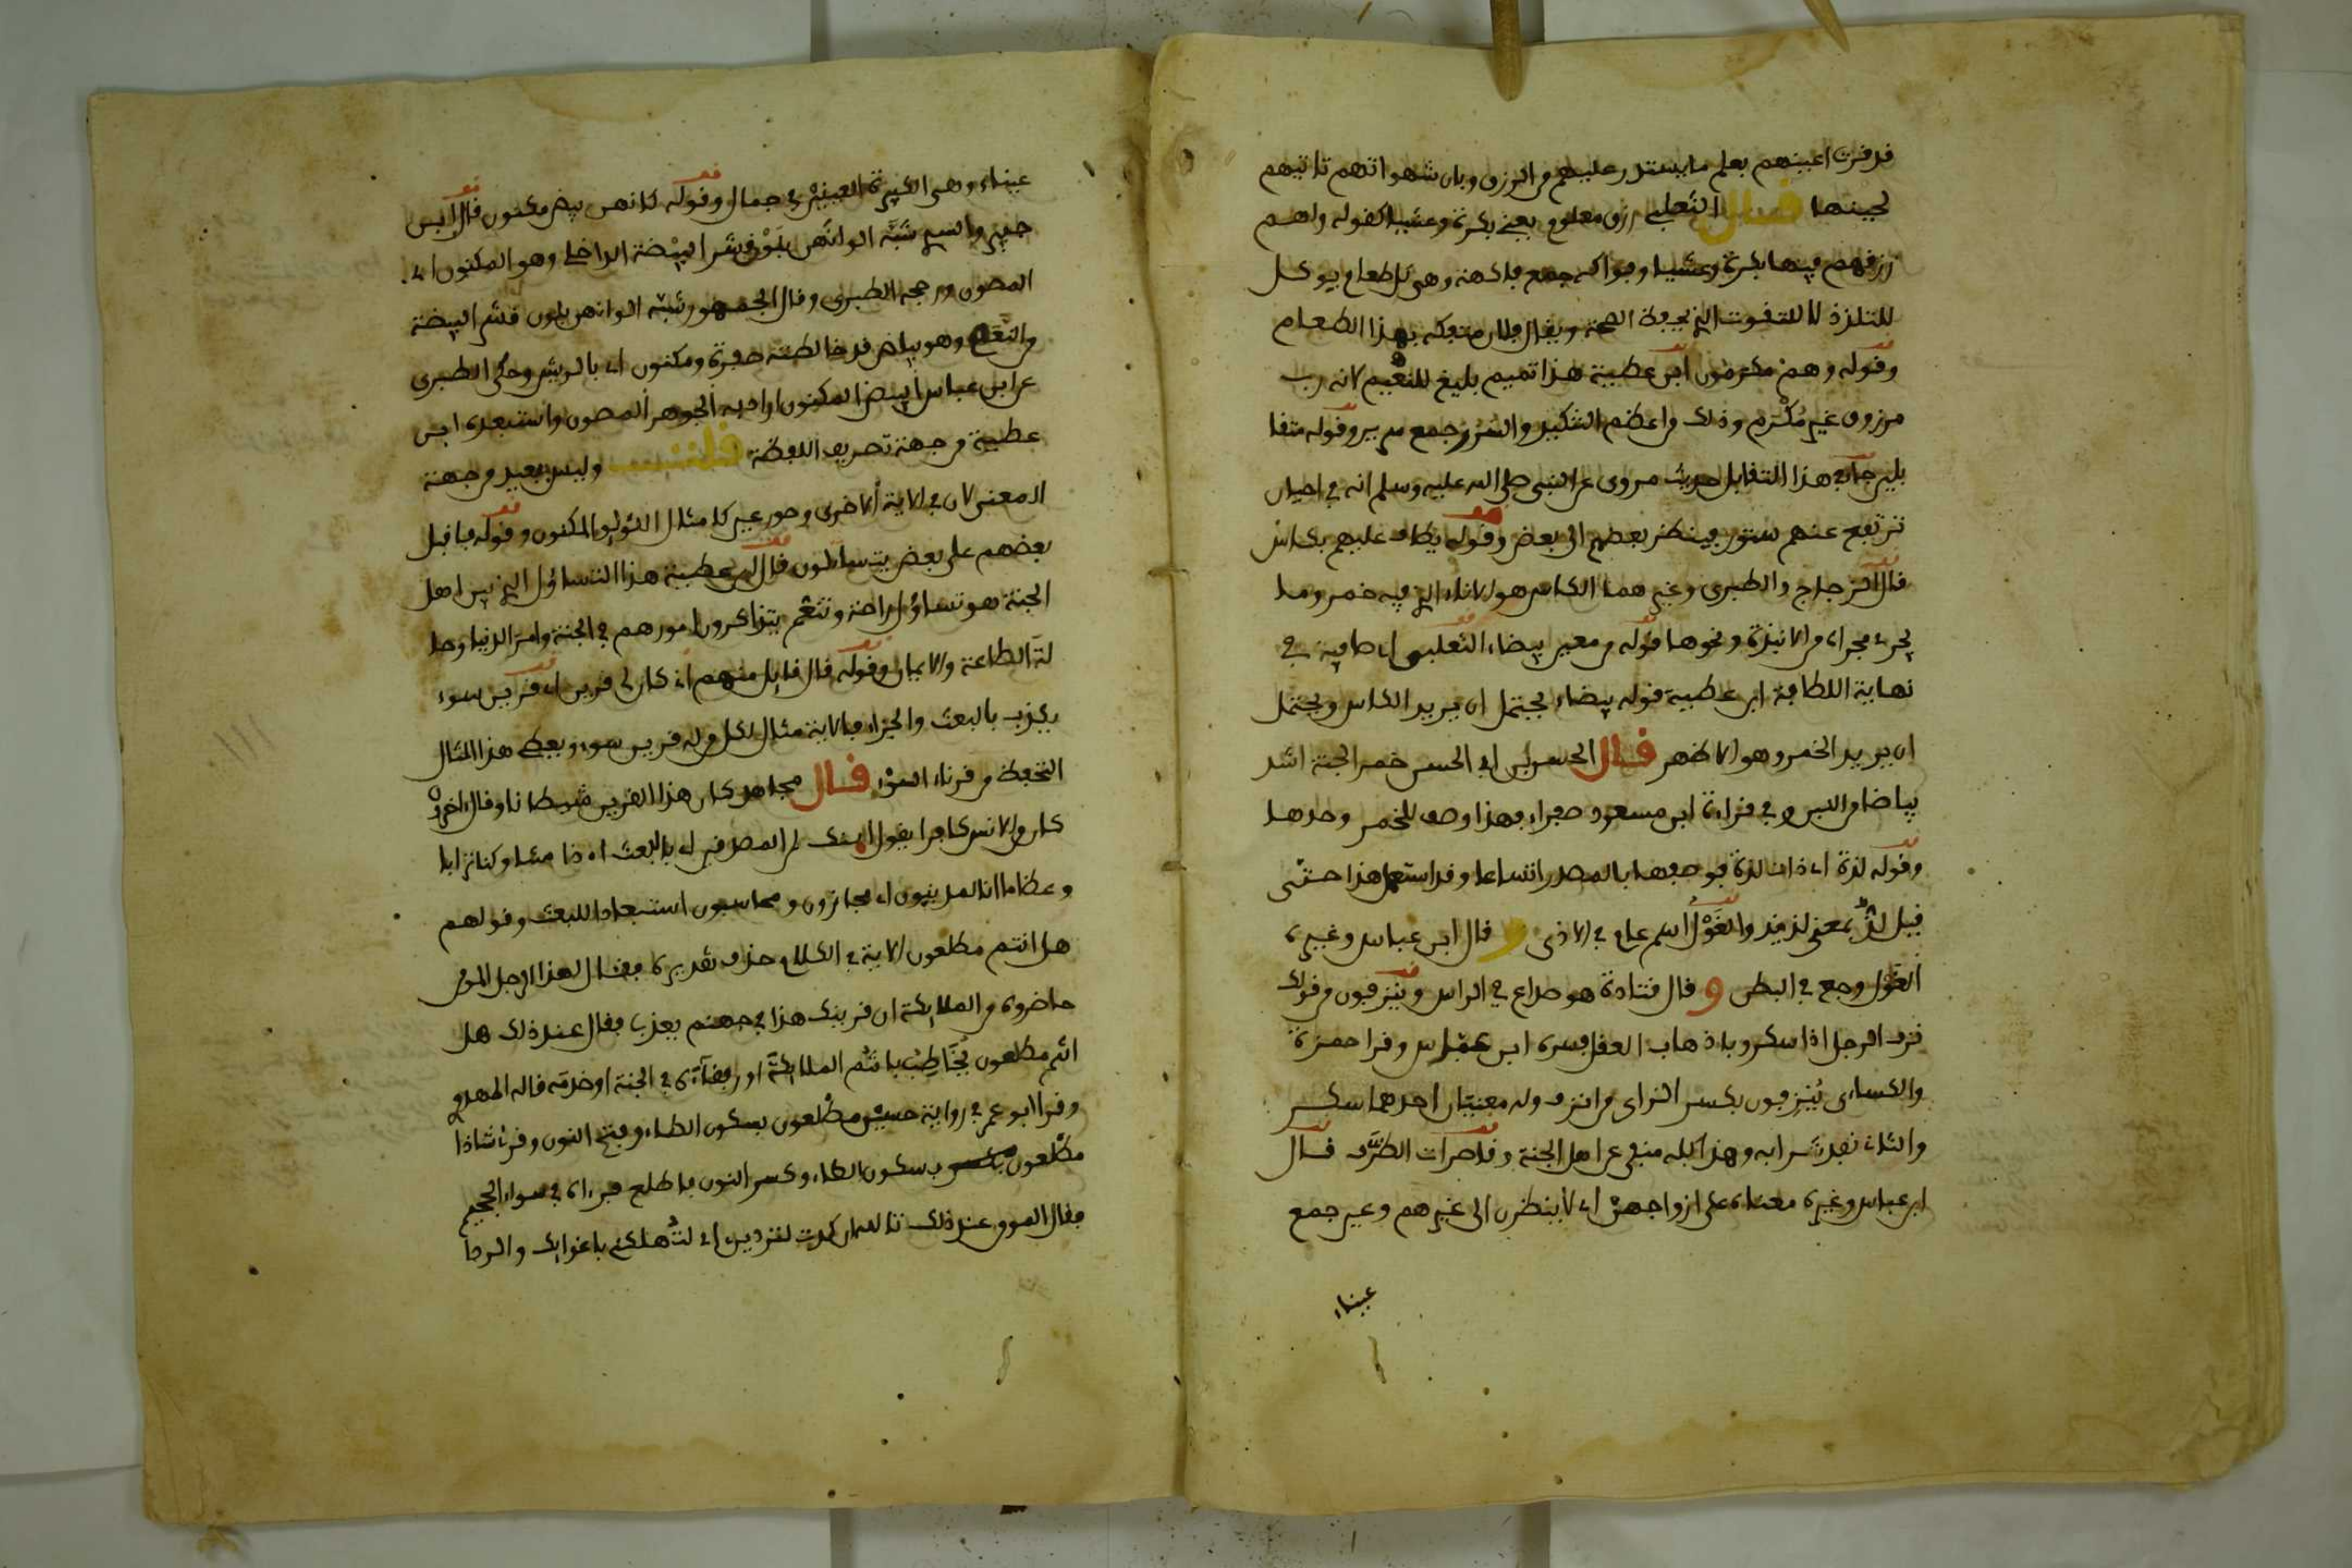 قد قرت اعينهم بعلم ما يستدر عليهم من الرزق وبان شهواتهم تاتيهم
لحينها قال الثعلبي رزق معلوم يعني بكرة وعشيا كقوله ولهم
رزقهم فيها بكرة وعشيا وفواكه جمع فاكهة وهي كل طعام يوكل
للتلذذ لا للتقوت الذي يحفظ الصحة ويقال فلان متفكه بهذا الطعام
وقوله وهم مكرمون ابن عطية هذا تميم بليغ للنعيم لانه رب
مرزوق غير مكرم وذلك من اعظم التنكيد والسرر جمع سرير وقوله متقا
بلين جاء في هذا التقابل حديث مروى عن النبي صلى الله عليه وسلم انه في احيان
ترتفع عنهم ستور فينظر بعضهم الى بعض وقوله يطاف عليهم بكاس
قال الزجاج والطبري وغيرهما الكاس هو الاناء الذي فيه خمر وما
يجرى مجراه من الانبذة ونحوها قوله من معين بيضاء الثعلبي اى صافية في
نهاية اللطافة ابن عطية قوله بيضاء يحتمل ان يريد الكاس ويحتمل
ان يريد الخمر وهو الاظهر قال الحسن بن ابي الحسن خمر الجنة اشد
بياضا من اللبن وفي قراءة ابن مسعود صفراء فهذا وصف للخمر وحدها
وقوله لذة اى ذات لذة فوصفها بالمصدر اتساعا وقد استعمل هذا حتى
قيل لذ بمعنى لذيذ والغول اسم عام في الاذى و قال ابن عباس وغيره
الغول وجع في البطن و قال قتادة هو صداع في الراس وينزفون من قولك
نزف الرجل اذا سكر وباذهاب العقل فسره ابن عباس وقرا حمزة
والكساءى ينزفون بكسر الزاى من انزف وله معنيان احدهما سكر
والثاني نفد شرابه وهذا كله منفي عن اهل الجنة وقاصرات الطرف قال
ابن عباس وغيره معناه على ازواجهن اى لا ينظرن الى غيرهم وعين جمع
عيناء
عيناء وهي الكبيرة العينين في جمال وقوله كانهن بيض مكنون قال ابن
جبير والسدي شبه الوانهن بلون قشر البيضة الداخلي وهو المكنون اى
المصون ورجحه الطبري وقال الجمهور شبه الوانهن بلون قشر البيضة
من النعام وهو بياض قد خالطته صفرة ومكنون اى بالريش وحكى الطبري
عن ابن عباس البيض المكنون اراد به الجوهر المصون واستبعده ابن
عطية من جهة تصريف اللفظة قلت وليس ببعيد من جهة
المعنى لان في الاية الاخرى وحور عين كامثال اللؤلؤ المكنون وقوله فاقبل
بعضهم على بعض يتساءلون قال ابن عطية هذا التساؤل الذي بين اهل
الجنة هو تساؤل راحة وتنعم يتذاكرون امورهم في الجنة وامر الدنيا وحا
لة الطاعة والايمان وقوله قال قايل منهم اني كان لى قرين اى قرين سوء
يكذب بالبعث والجزاء فالاية مثال لكل من له قرين سوء ويعطى هذا المثال
التحفظ من قرناء السوء قال مجاهد كان هذا القرين شيطانا وقال اخرون
كان من الانس كافرا يقول اءنك لمن المصدقين اى بالبعث اءذا متنا وكنا ترابا
وعظاما انا لمدينون اى مجازون ومحاسبون استبعادا للبعث وقولهم
هل انتم مطلعون الاية في الكلام حذف تقديره فقال لهذا الرجل المومن
حاضروه من الملايكة ان قرينك هذا في جهنم يعذب فقال عند ذلك هل
انتم مطلعون يخاطب بانتم الملايكة او رفقاءه في الجنة او خدمه قاله المهدوي
وقرا ابو عمر في رواية حسين مطلعون بسكون الطاء وفتح النون وقرئ شاذا
مطلعون بسكون الطاء وكسر النون فاطلع فرءاه في سواء الجحيم
فقال المومن عند ذلك تالله ان كدت لتردين اى لتهلكني باغوايك والردا